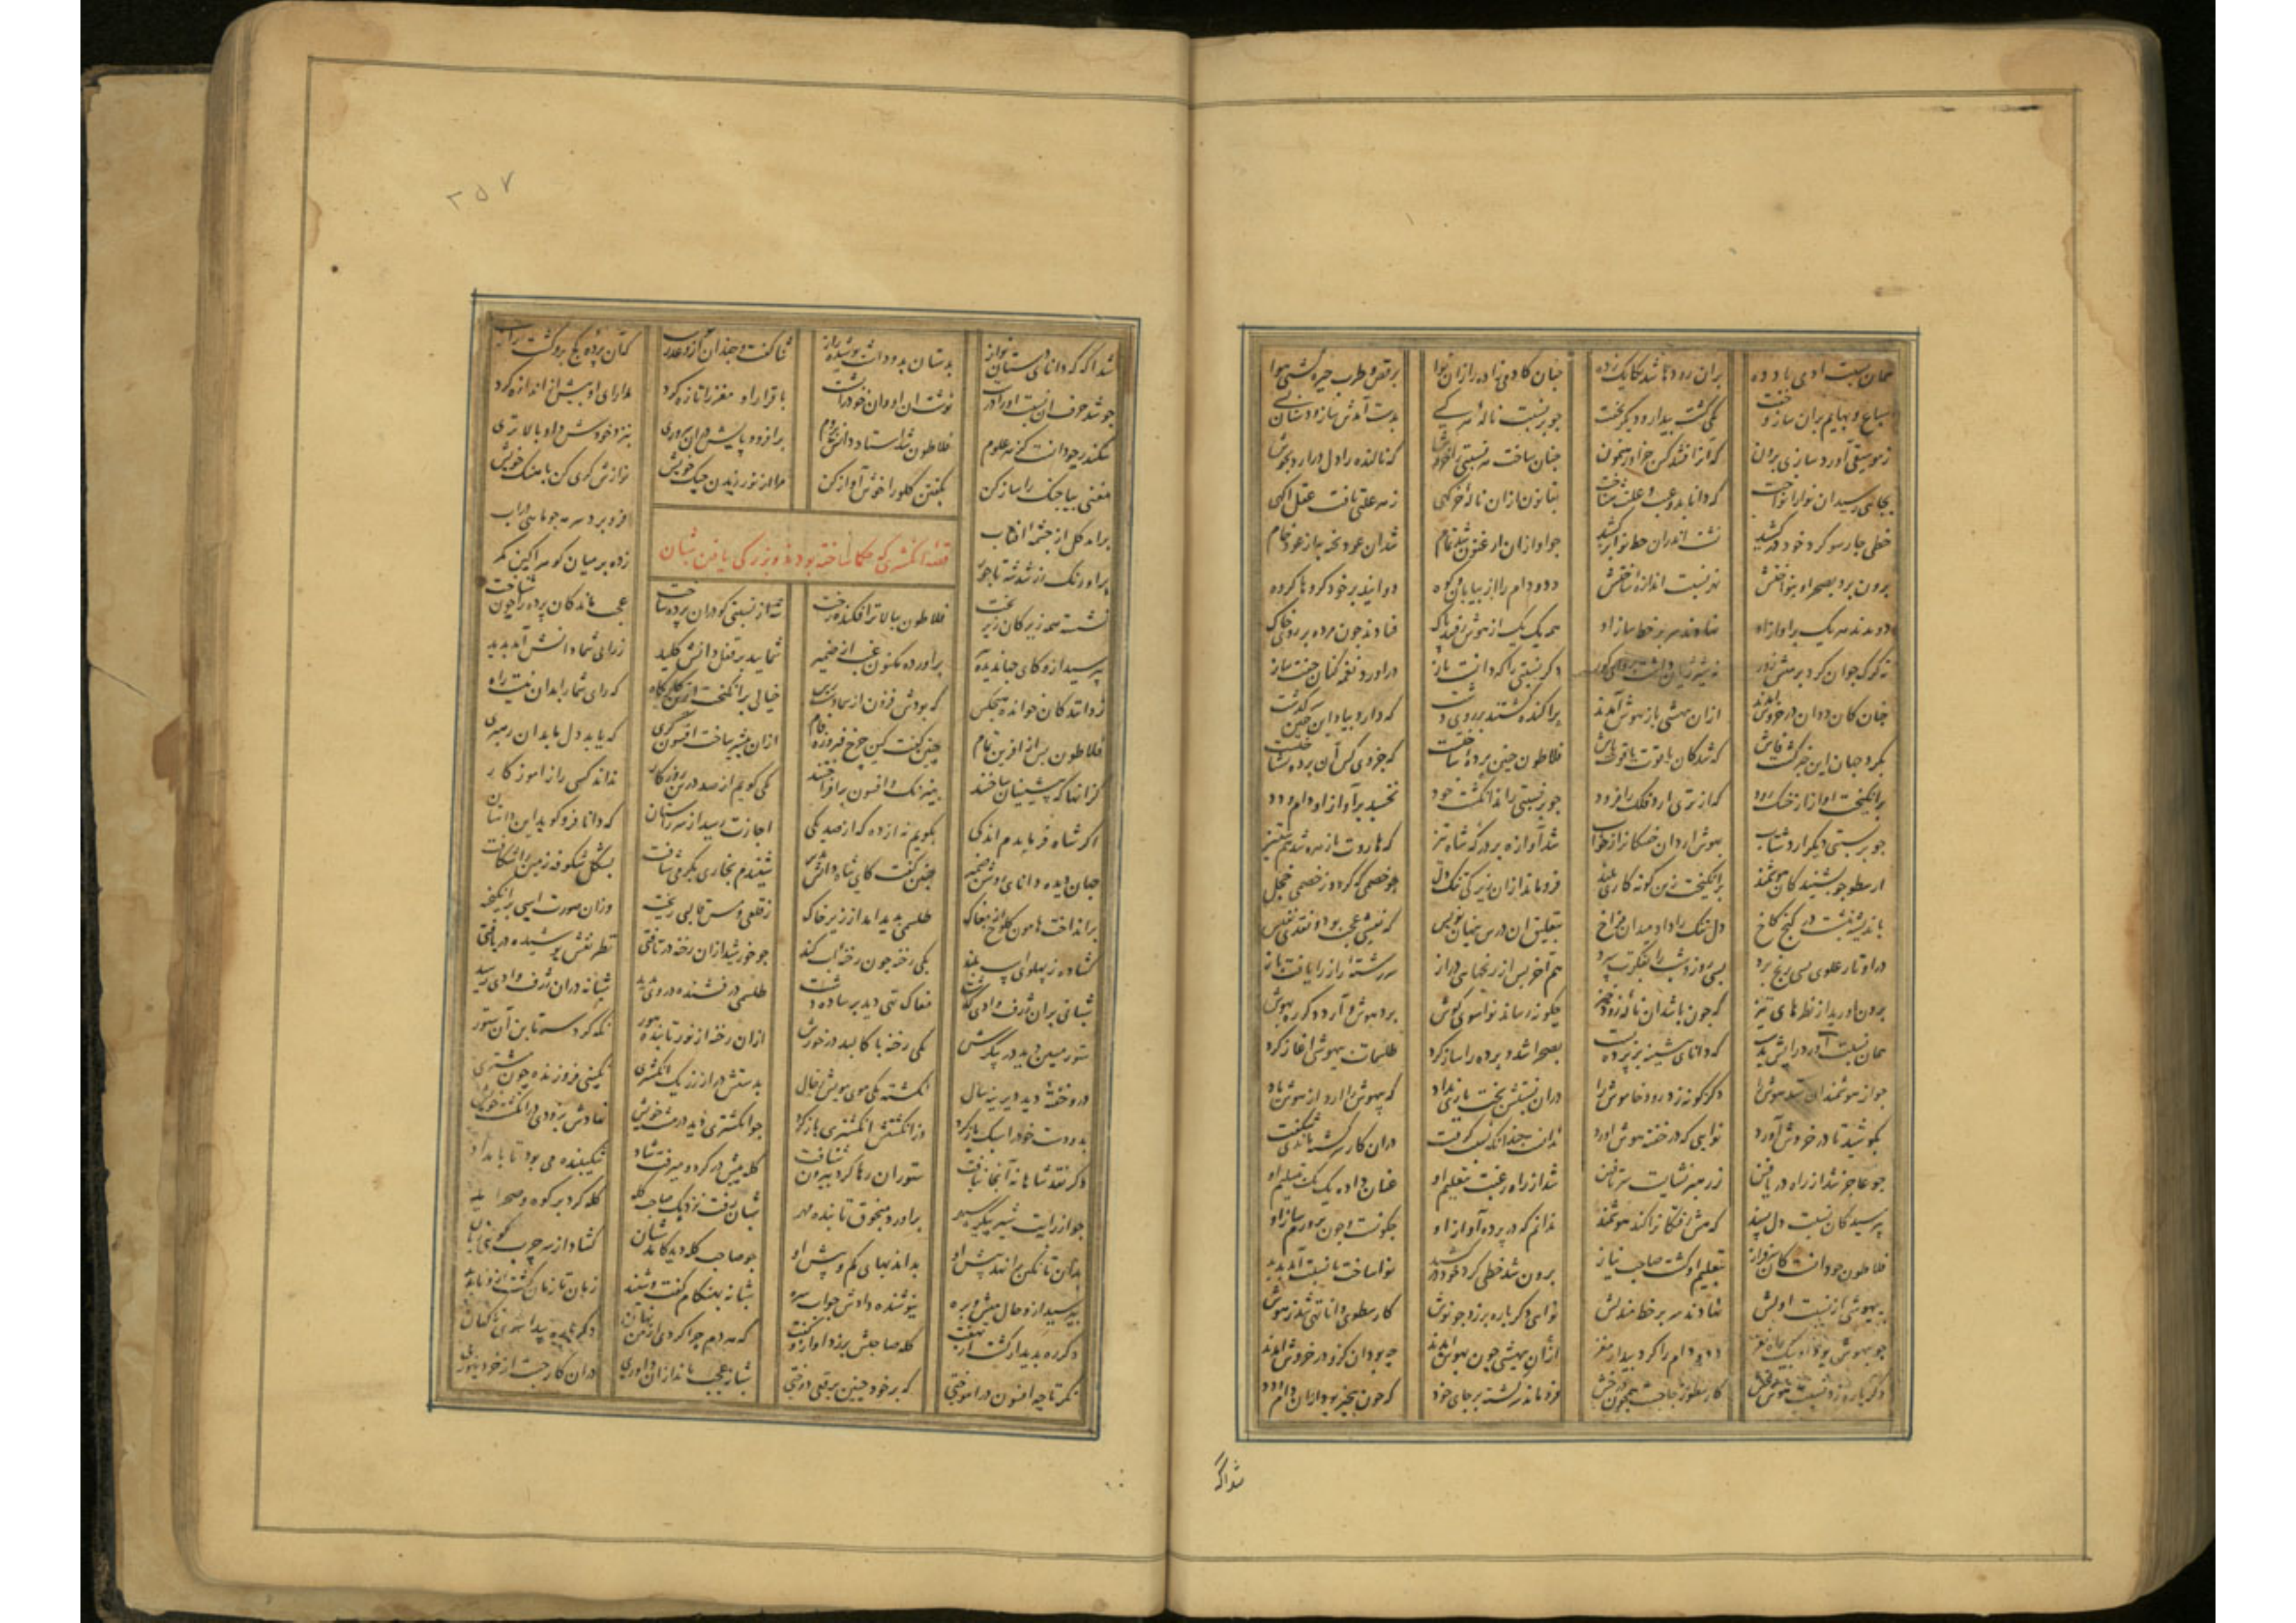 همان نسبت آدمی تا دده بران رودها شد یکایک زده چنان کادمی زاده را زان نوا برقص و طرب خیره گشتی هوا
سباع و بهایم بران ساز خفت یکی گشت بیدار و دیگر بخفت چو بر نسبت ناله هر کسی بدست آمدش ساز دستان بسی
ز موسیقی آورد سازی برون که آنرا نشد کس جز او رهنمون چنان ساخت هر نسبتی را خروش که نالنده را دل درآرد بجوش
بجائی رسید آن نوا را نواخت که دانا بدو عیب و علت شناخت بقانون ازان ناله خرگهی ز هر علتی یافت عقل آگهی
چو آواز آن ارغنون شد تمام شد آن عود پخته به از عود خام
برون برد بصحرا و بنواختش بدو نسبت اندازه‌ ساختش دد و دام را از بیابان و کوه دوانید بر خود گروها گروه
دویدند هر یک بر آواز او نهادند سر بر خط ساز او همه یک یک از هوش رفتند پاک فتادند چون مرده بر روی خاک
نه گرگ جوان کرد بر میش زور نه شیر ژیان داشت پروای گور دگر نسبتی را که دانست باز درآورد نغمه کنان جفت ساز
چنان کان ددان در خروش آمدند ازان بیهشی باز هوش آمدند پراکنده گشتند بر روی دشت که دارد بیاد این چنین سرگذشت
بگرد جهان این خبر گشت فاش که شد کان یاقوت یاقوت پاش فلاطون چنین پرده‌ ساختست که جز وی کس آن پرده نشناختست
برانگیخت آوازی از خشک رود که از تری آرد فلک را فرود چو بر نسبتی راند انگشت خود نخسبد بر آواز او دام و دد
چو بر نسبتی دیگر آرد شتاب بهوش آرد آن خفتگانرا ز خواب شد آوازه بر درگه شاه نیز که هاروت با زهره شد هم ستیز
ارسطو چو بشنید کان هوشمند برانگیخت زین گونه کاری بلند فرو ماند ازان زیرکی تنگ دل چو خصمی که گردد ز خصمی خجل
باندیشه بنشست در کنج کاخ دل تنگ را داد میدان فراخ بتعلیق آن درس پنهان نویس که نقشی عجب بود و نقدی نفیس
در اوتار علوی بسی رنج برد بسی روز و شب را بفکرت سپرد هم آخر پس از رنجهای دراز سررشته راز را یافت باز
برون آورید از نظرهای تیز که چون باشد آن ناله رود خیز چگونه رساند نوا سوی گوش برد هوش و آرد دگر ره بهوش
همان نسبت آورد رایش بدست که دانای پیشینه بر پرده بست بصحرا شد و پرده را ساز کرد طلسمات بیهوشی آغاز کرد
چو از هوشمندان ستد هوش را دگر گونه زد رود خاموش را دران نسبتش بخت یاری نداد که بیهوش را آرد از هوش یاد
بکوشید تا در خروش آورد نوایی که در خفته هوش آورد ندانست چندانک نسبت گرفت دران کار سرگشته ماند ای شگفت
چو عاجز شد از راه در یافتن ز رهبر نشایست سر تافتن شد از راه رغبت بتعلیم او عنان داده یک یک بتسلیم او
بپرسید کان نسبت دل پسند که هش رفتگانرا کند هوشمند ندانم که در پرده آواز او چگونست و چون پرورم ساز او
فلاطون چو دانست کان سرفراز بتعلیم او گشت صاحب نیاز برون شد خطی گرد خود در کشید نوا ساخت تا نسبت آمد پدید
به بیهوشی از نسبت اولش نهادند سر بر خط مندلش نوای دگر باره بر زد چو نوش کارسطوی دانا تهی شد ز هوش
چو بیهوش بود او بیک راه نغز دد و دام را کرد بیدار مغز ازان بیهشی چون بهوش آمدند چه بود آن کزو در خروش آمدند
دگر باره زد نسبت هوش بخش که ارسطو ز جا جست همچون درخش فرو ماند سرگشته بر جای خود که چون بیخبر بود ازان دام و دد
شداگه
۲۵۷
شد آگه که دانای دستان نواز بدستان بدو داشت پوشیده راز ثنا گفت و چندان ازو عذر خواست کان پرده کج برو گشت راست
چو شد حرف آن نسبت او را درست نوشت آن او وان خود را بشست باقرار او مغز را تازه کرد مدارای او بیش از اندازه کرد
سکندر چو دانست کز هر علوم فلاطون شد استاد دانش بروم برافزود پایش دران سروری بنزد خودش داد بالاتری
مغنی بیا چنگ را ساز کن بگفتن گلو را خوش آواز کن مرا از نوازیدن چنگ خویش نوازش گری کن باهنگ خویش
قصه انگشتری که حکما ساخته بود و بزرگی یافتن شبان
برامد گل از چشمه افتاب فرو برد سر چو ماهی در آب
براورنگ زر شد شه تاجور زده بر میان گوهر اگین کمر
نشسته همه زیرکان زیر تخت فلاطون ببالاتر افکنده رخت شه از نسبتی کو دران پرده ساخت عجب ماند کان پرده را چون شناخت
بپرسید ازو کای جهاندیده پیر براورده مکنون غیب از ضمیر شمایید بر قفل دانش کلید ز رای شما دانش آمد پدید
ز دانندگان خوانده هیچکس که بودش فزون از شما دست رس خیالی برانگیخت زین کارگاه که رای شما را بدان نیست راه
فلاطون پس از افرین تمام چنین گفت کین چرخ فیروزه فام ازان بیشتر ساخت افسون گری که یابد دل ما بدان رهبری
گر انها که پیشینیان ساختند به نیرنگ و افسون برافراختند یکی گویم از صد درین روزگار نداند کسی راز آموزگار
اگر شاه فرمایدم اندکی بگویم نه از ده که از صد یکی اجازت رسید از سر راستان که دانا فرو گوید این داستان
جهان دیده دانای روشن ضمیر چنین گفت کای شاه دانش پذیر شنیدم بخاری بگرمی شتافت بشکل شکوفه زمین را شکافت
برانداخت هامون کلوخ از مغاک طلسمی پدید امد از زیر خاک ز قلعی و مس قالبی ریخته وزان صورت اسبی برانگیخته
گشاده ز پهلوی اسب بلند یکی رخنه چون رخنه اب کند چو خورشید ازان رخنه درتافتی نظر نقش پوشیده دریافتی
شبانی بران ژرف وادی گذشت مغاک تهی دید بر ساده دشت طلسمی درفشنده در وی بدید شبانه دران ژرف وادی رسید
ستور مسین دید در پیکرش یکی رخنه با کالبد در خورش ازان رخنه از نور تابنده هور نگه کرد سر تا بن آن ستور
درو خفته دید دیرینه سال نگشته یکی موی مویش ز حال بدستش در از زر یک انگشتری نگینی فروزنده چون مشتری
بدو دست خود را سبک باز کرد از انگشتش انگشتری باز کرد چو انگشتری دید در مشت خویش نهادش بزودی در انگشت خویش
دگر نقد شاهانه آنجا نیافت ستوران رها کرد بیرون شتافت گله پیش در کرد و میرفت شاد شکیبنده می بود تا بامداد
چو از رایت شیر پیکر سپهر براورد منجوق تابنده مهر شبان رفت نزدیک صاحب گله گله کرد بر کوه و صحرا یله
بدان تا نگین را نهد پیش او بداند بهای کم و بیش او چو صاحب گله دید کامد شبان گشاد از سر چرب گویی زبان
بپرسید ازو حال میش و بره نیوشنده دادش جواب سره شبانه بهنگام گفت و شنید زمان تا زمان گشت ازو ناپدید
دگر ره پدیدار گشت از نهفت گله صاحبش بر زد اواز و گفت که هر دم چرا گردی از من نهان دگر باره پیدا شوی ناگهان
نگر تا چه افسون در اموختی که بر خود چنین برقعی دوختی شبان زین عجب ماند ازان داوری دران کار جست از خرد یاوری